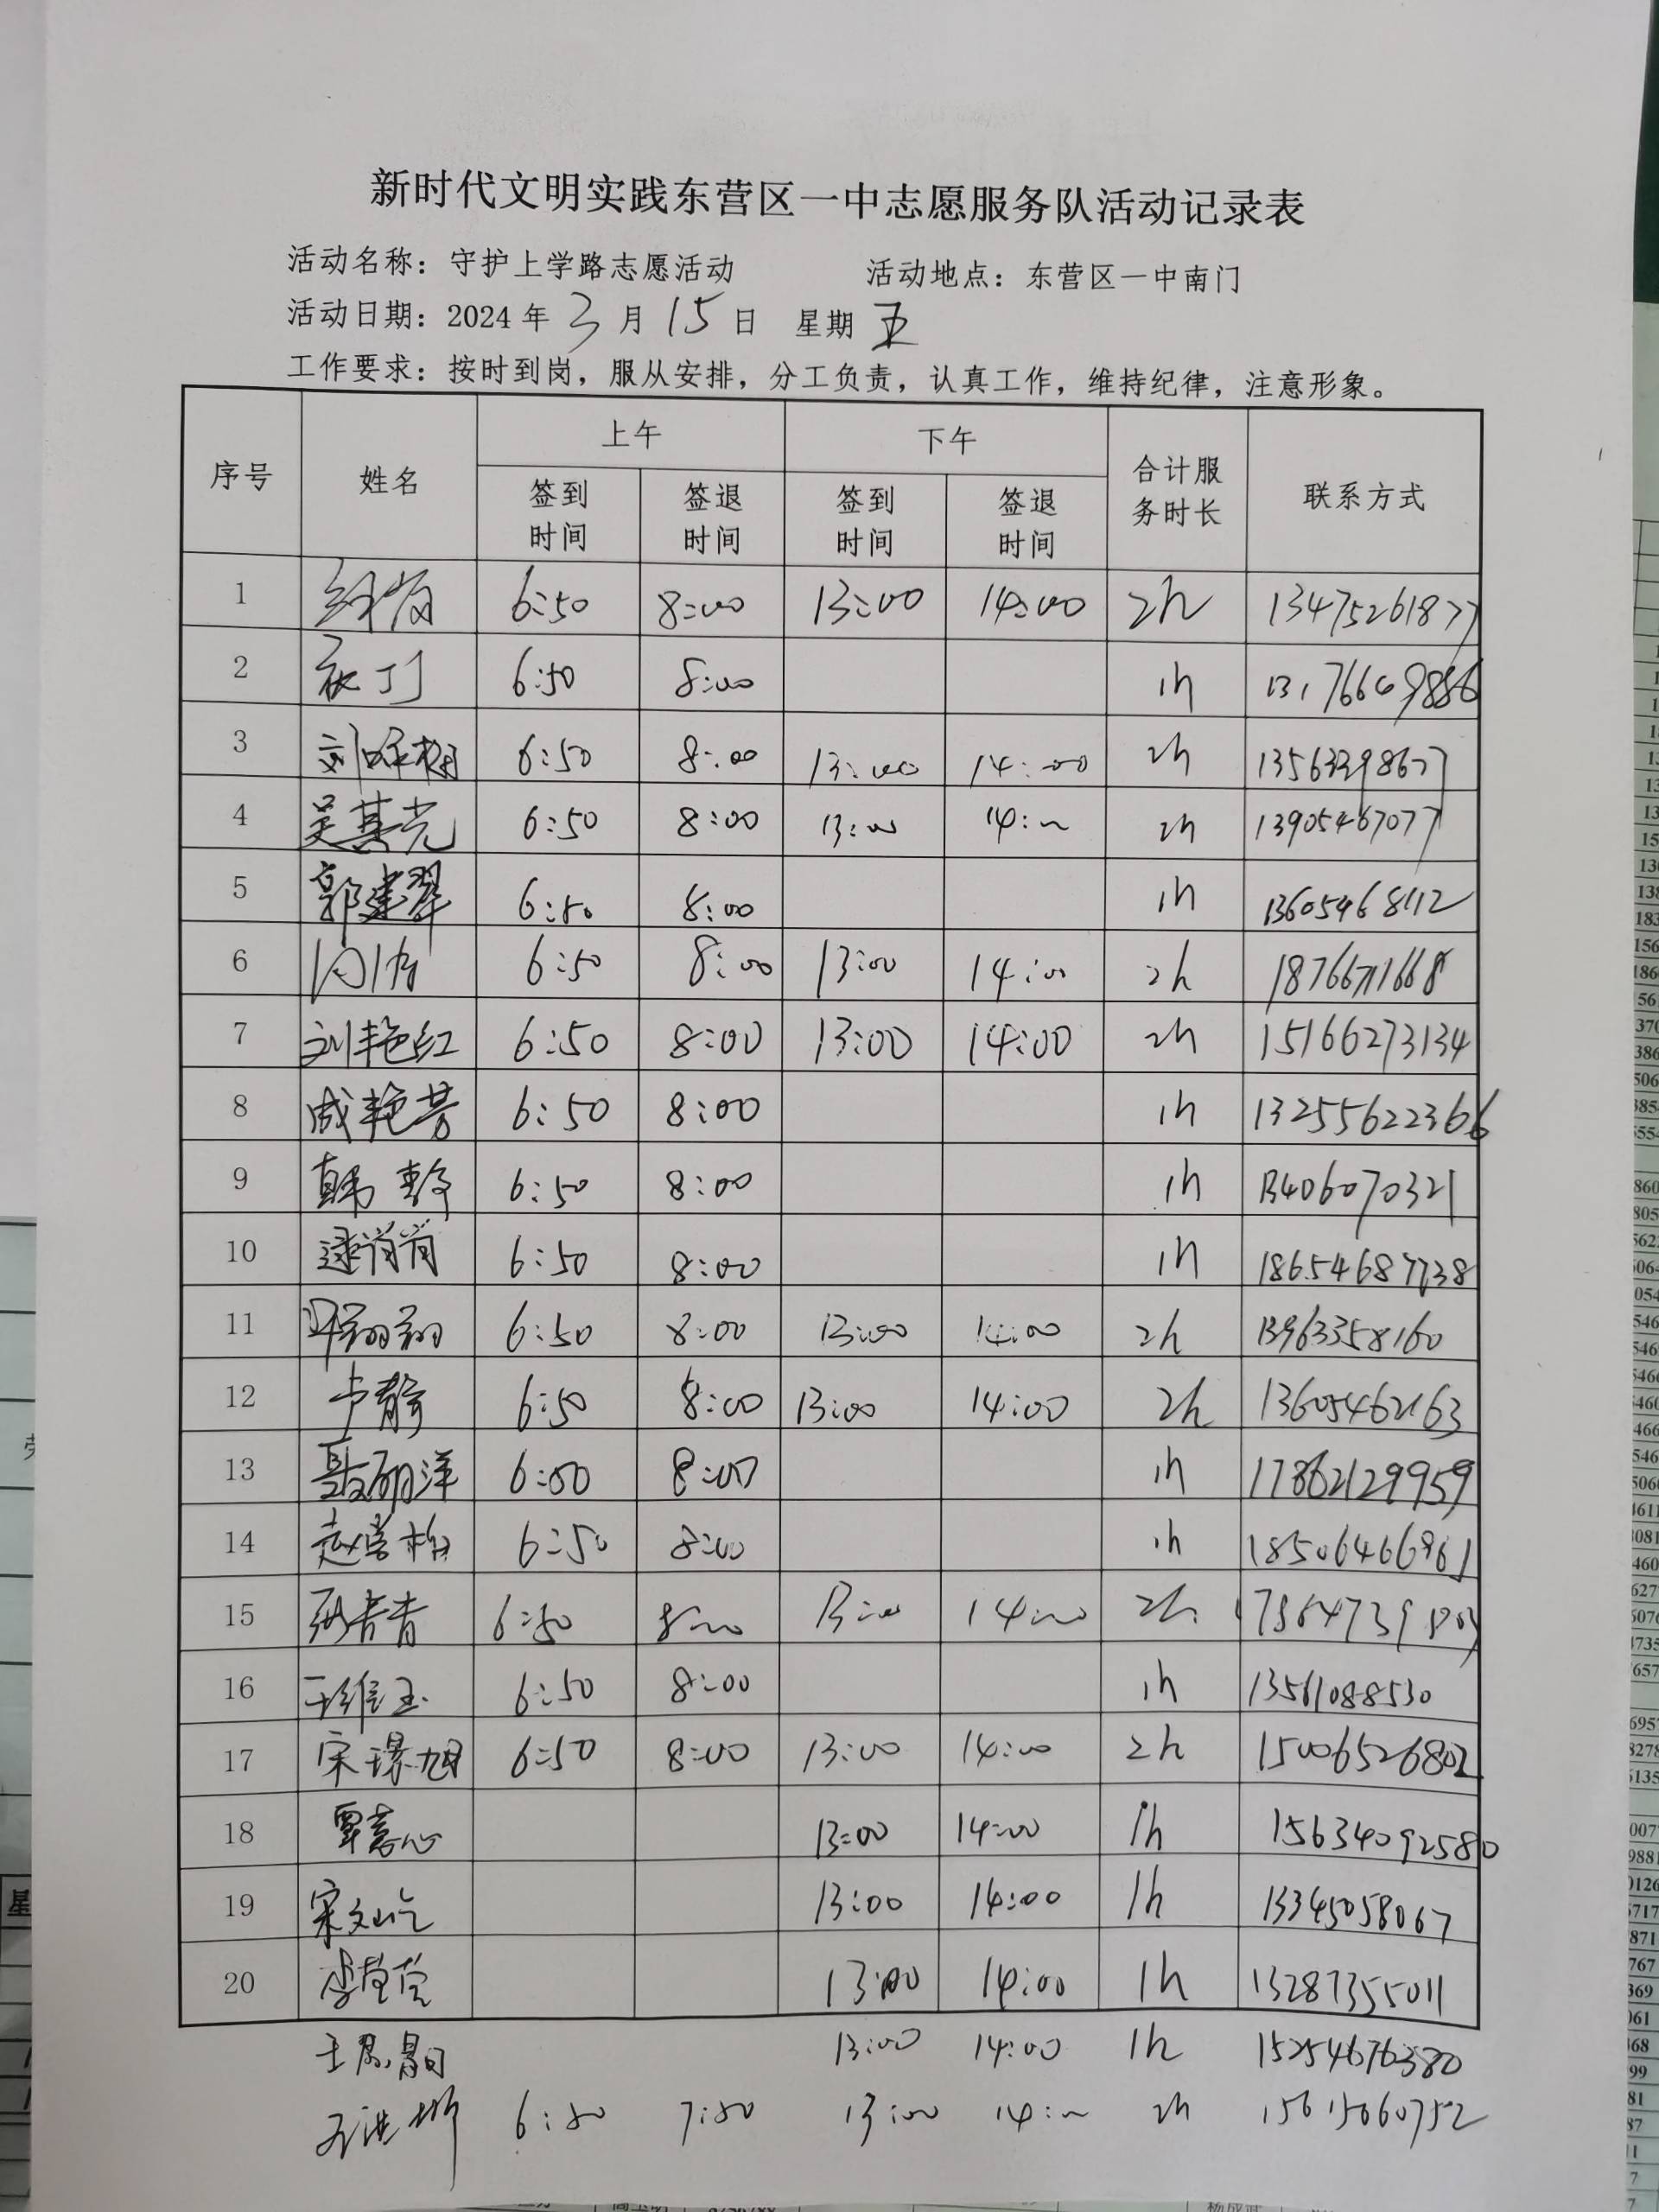 新时代文明实践东营区一中志愿服务队活动记录表
活动名称：守护上学路志愿活动 活动地点：东营区一中南门
活动日期：2024 年 3 月 15 日 星期 五
工作要求：按时到岗，服从安排，分工负责，认真工作，维持纪律，注意形象。
序号 姓名 上午 下午 合计服务时长 联系方式
签到时间 签退时间 签到时间 签退时间
1 6:50 8:00 13:00 14:00 2h 13475261877
2 6:50 8:00 1h 13176669886
3 6:50 8:00 13:00 14:00 2h
4 吴其光 6:50 8:00 13:00 14:00 2h 13905467077
5 郭建翠 6:50 8:00 1h 13605468112
6 闫倩 6:50 8:00 13:00 14:00 2h 18766711668
7 刘艳红 6:50 8:00 13:00 14:00 2h 15166273134
8 成艳芳 6:50 8:00 1h 13255622366
9 韩静 6:50 8:00 1h 13406070321
10 逯肖肖 6:50 8:00 1h 18654687738
11 翔翔 6:50 8:00 13:00 14:00 2h 13963358160
12 卢静 6:50 8:00 13:00 14:00 2h 13605462163
13 聂丽洋 6:50 8:00 1h 17862129959
14 6:50 8:00 1h 18506466961
15 青青 6:50 8:00 13:00 14:00 2h
16 王维玉 6:50 8:00 1h 13561088530
17 宋璟旭 6:50 8:00 13:00 14:00 2h 15006526802
18 覃喜心 13:00 14:00 1h 15634092580
19 宋文屹 13:00 14:00 1h 13345058067
20 李莹莹 13:00 14:00 1h 13287355011
13:00 14:00 1h 15254676380
6:50 7:50 13:00 14:00 2h 15615060752